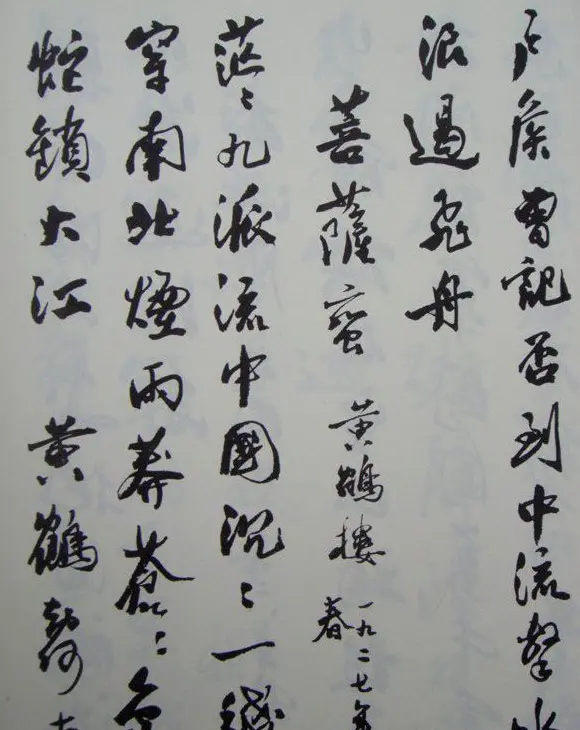 戶侯曾記否到中流擊水
浪遏飛舟
菩薩蠻 黃鶴樓 一九二七年春
茫〻九派流中國沉〻一綫
穿南北煙雨莽蒼〻龜
蛇鎖大江 黃鶴知何去